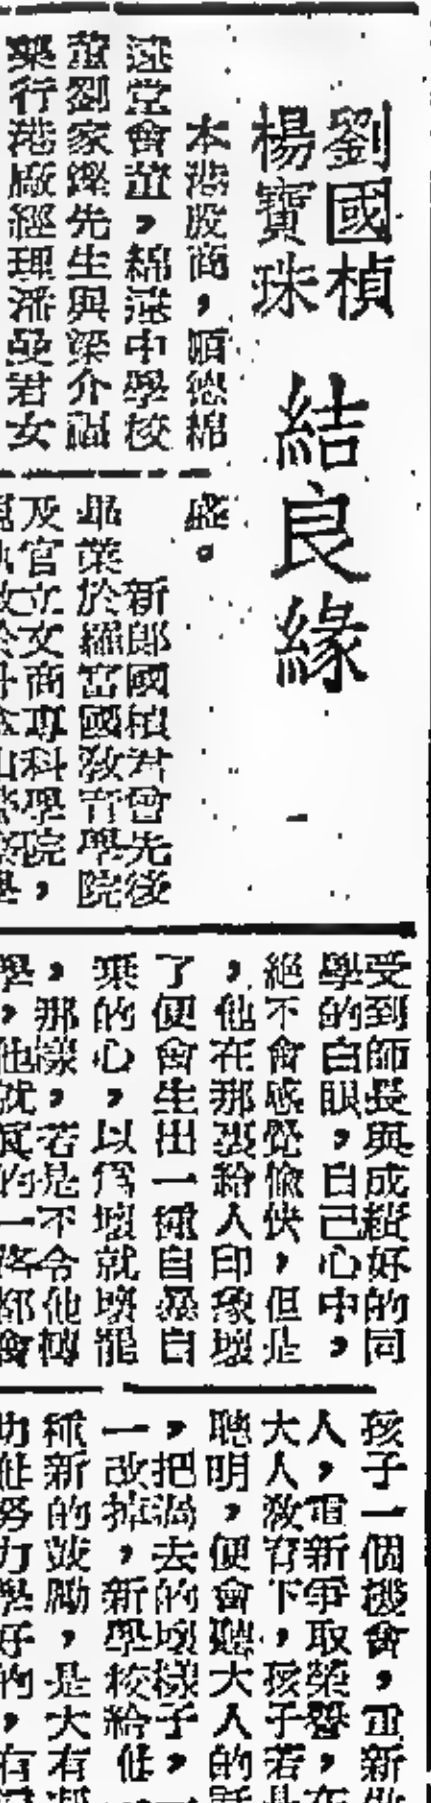 劉國楨
楊寶珠
結良緣
本港殷商，順德綿
遠堂會董，綿遠中學校
董劉家鏗先生與梁介福
藥行港廠經理潘曼君女
盛。
新郎國楨君曾先後
畢業於羅富國敎育學院
及官立文商專科學院，
受到師長與成績好的同
學的白眼，自己心中，
絕不會感覺愉快，但是
，他在那裏給人印象壞
了便會生出一種自暴自
棄的心，以爲壞就壞罷
，那樣，若是不令他轉
學，他就眞的一路都會
孩子一個機會，重新做
人，重新爭取榮譽，在
大人敎育下，孩子若是
聰明，便會聽大人的話
，把過去的壞樣子，一
一改掉，新學校給他一
種新的鼓勵，是大有
助他努力學好的，有